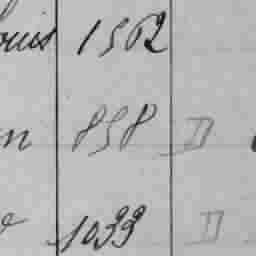 ouis 1562
n 858 D
1033 D